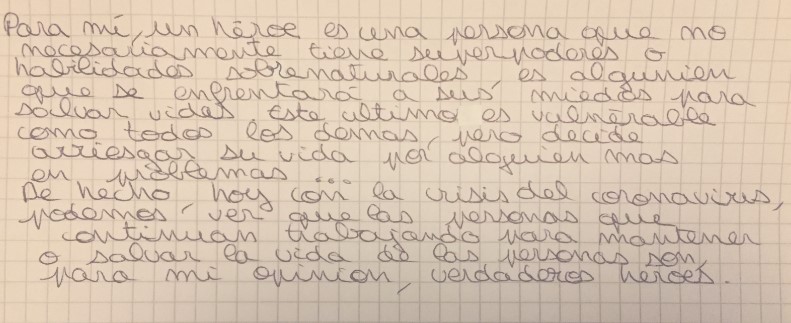 Para mí, un héroe es una persona que no
necesariamente tiene superpoderes o
habilidades sobrenaturales, es alguien
que se enfrentará a sus miedos para
salvar vidas. Este ultimo es vulnerable
como todos los demas, pero decide
arriesgar su vida por alguien mas
en problemas ...
De hecho hoy con la crisis del coronavirus,
podemos ver que las personas que
continuan trabajando para mantener
o salvar la vida de las personas son,
para mi opinion, verdaderos heroes.